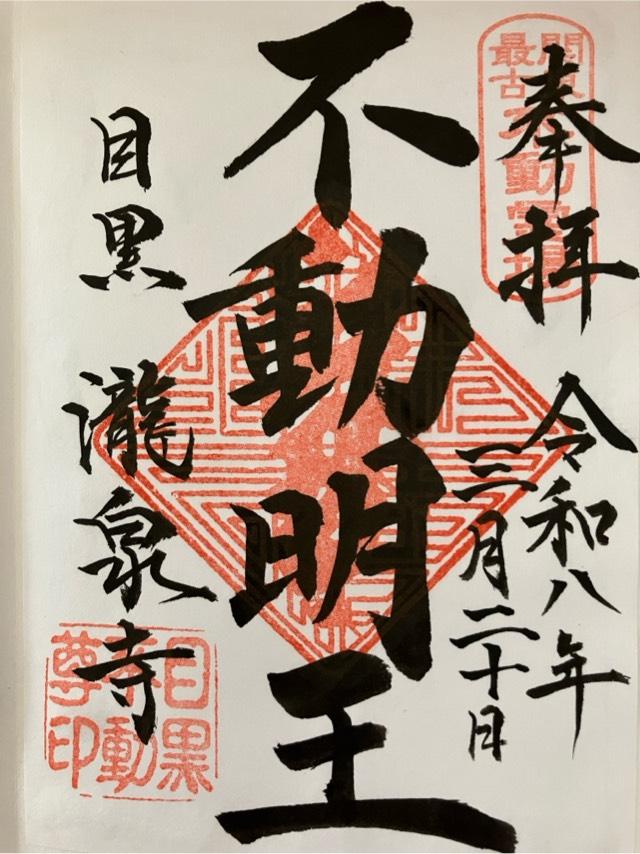 奉拝
令和八年
三月二十日
不動明王
目黒 瀧泉寺
関東最古不動霊場
目黒不動尊印